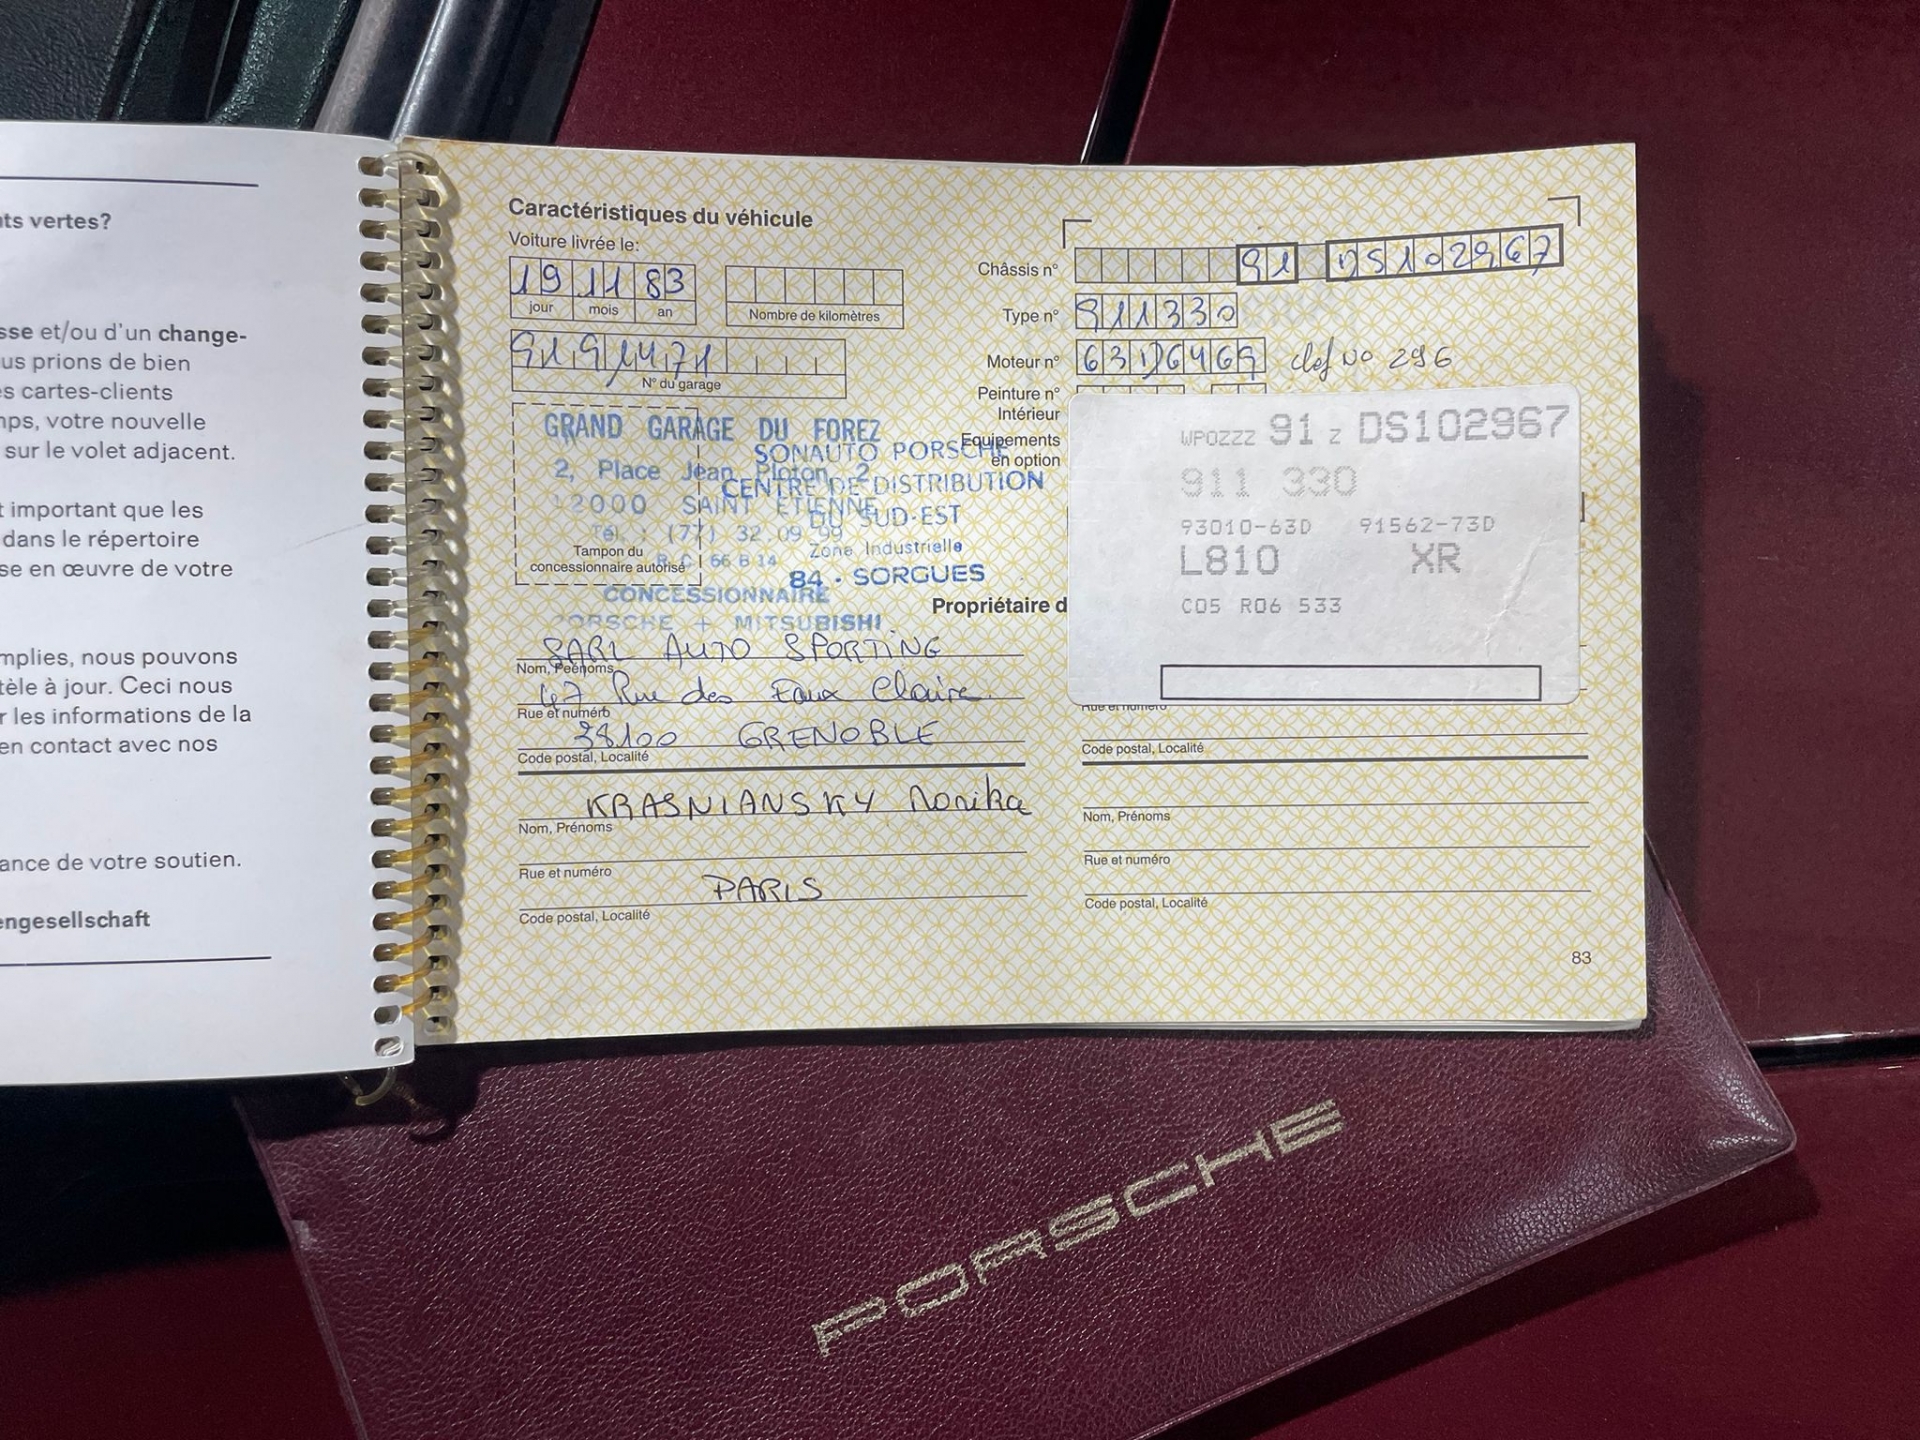 ts vertes?
sse et/ou d'un change-
us prions de bien
es cartes-clients
mps, votre nouvelle
sur le volet adjacent.
t important que les
dans le répertoire
se en œuvre de votre
mplies, nous pouvons
tèle à jour. Ceci nous
r les informations de la
en contact avec nos
ance de votre soutien.
engesellschaft
Caractéristiques du véhicule
Voiture livrée le:
19 11 83
jour mois an
Nombre de kilomètres
9191471
N° du garage
Châssis n° 91 DS102967
Type n° 911330
Moteur n° 63D6469 clef No 296
Peinture n°
Intérieur
Equipements
en option
GRAND GARAGE DU FOREZ
2, Place Jean Ploton, 2
42000 SAINT ETIENNE
Tél. : (77) 32.09.99
R.C. 66 B 14
CONCESSIONNAIRE
PORSCHE + MITSUBISHI
SONAUTO PORSCHE
CENTRE DE DISTRIBUTION
DU SUD-EST
Zone Industrielle
84 - SORGUES
Tampon du
concessionnaire autorisé
WPOZZZ 91 Z DS102967
911 330
93010-63D 91562-73D
L810 XR
C05 R06 533
Propriétaire d
SARL AUTO SPORTING
Nom, Prénoms
47 Rue des Eaux Claire.
Rue et numéro
38100 GRENOBLE
Code postal, Localité
KRASNIANSKY Monika
Nom, Prénoms
Rue et numéro
PARIS
Code postal, Localité
Rue et numéro
Code postal, Localité
Nom, Prénoms
Rue et numéro
Code postal, Localité
83
PORSCHE